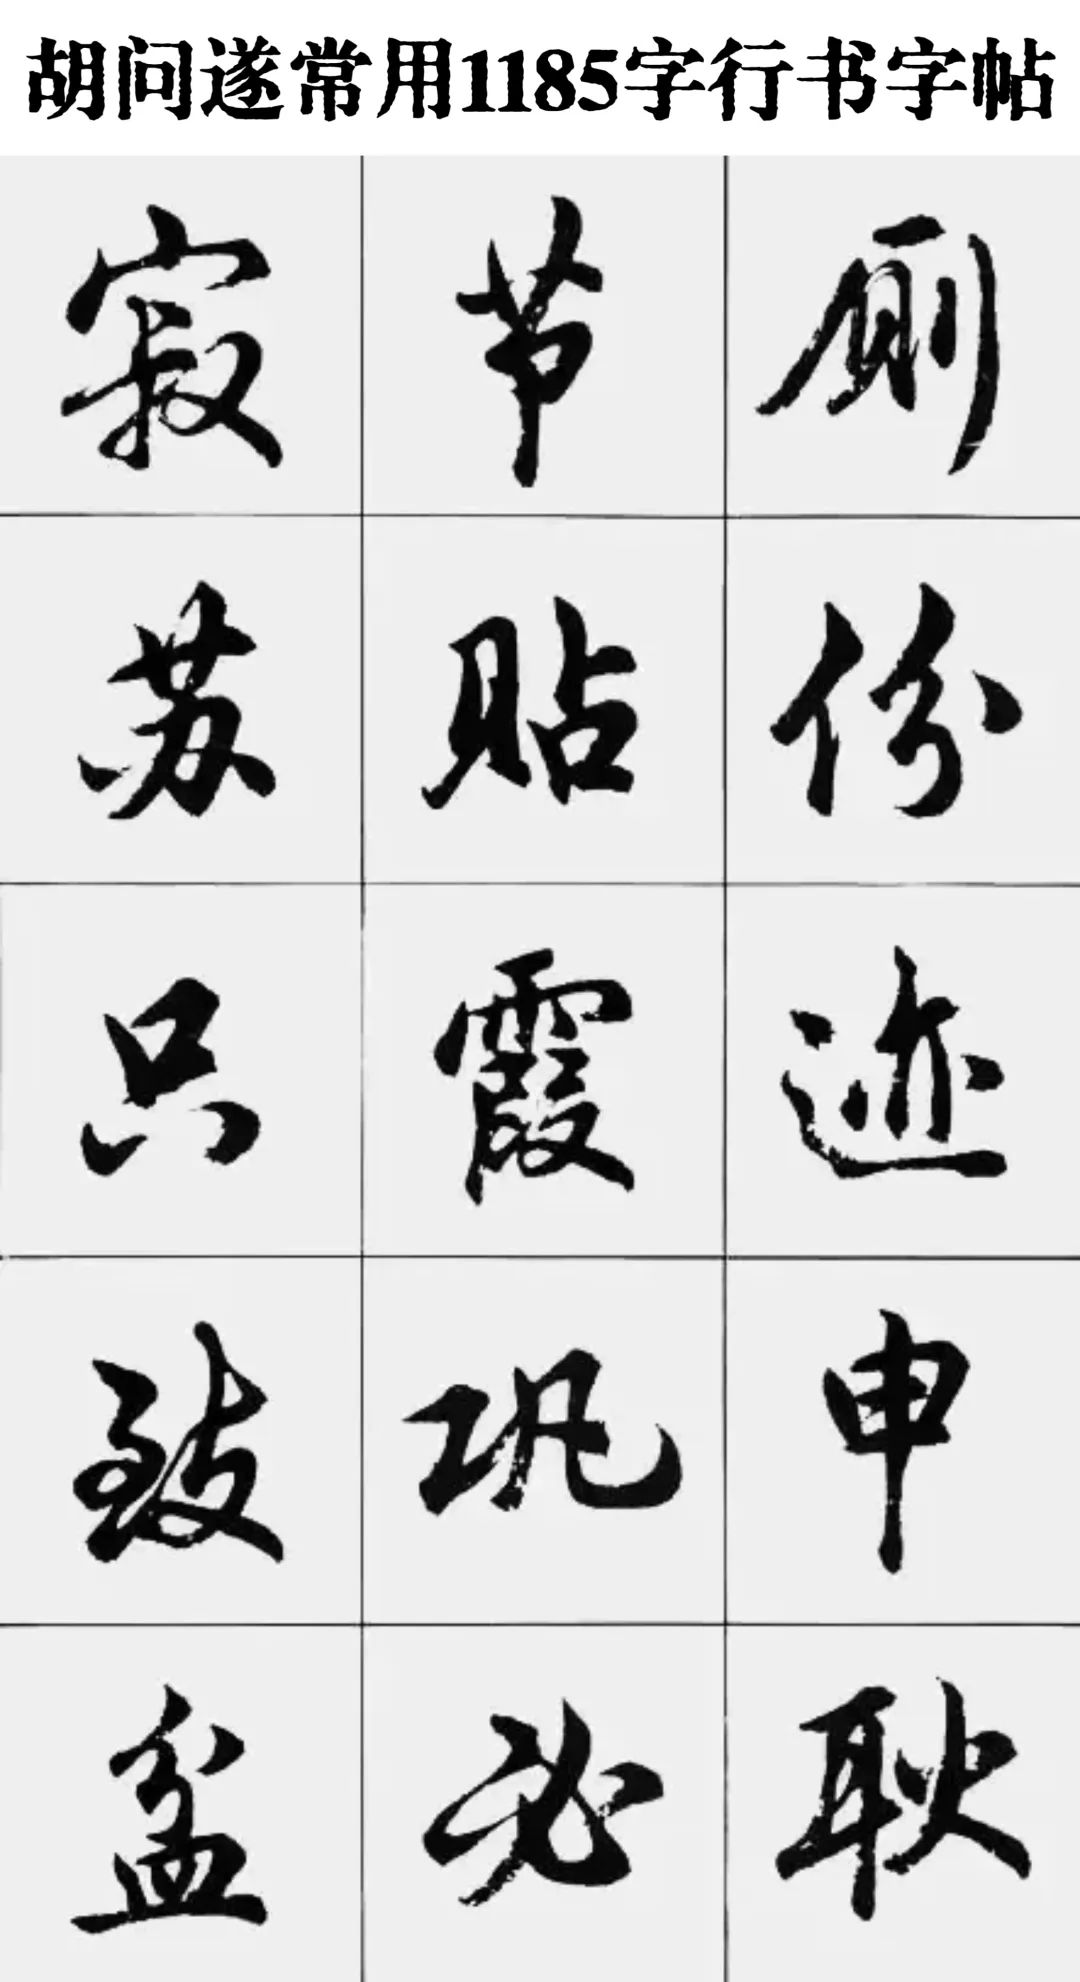 胡问遂常用1185字行书字帖
寂 节 厕
苏 贴 份
只 霞 迹
致 巩 申
盆 必 耿